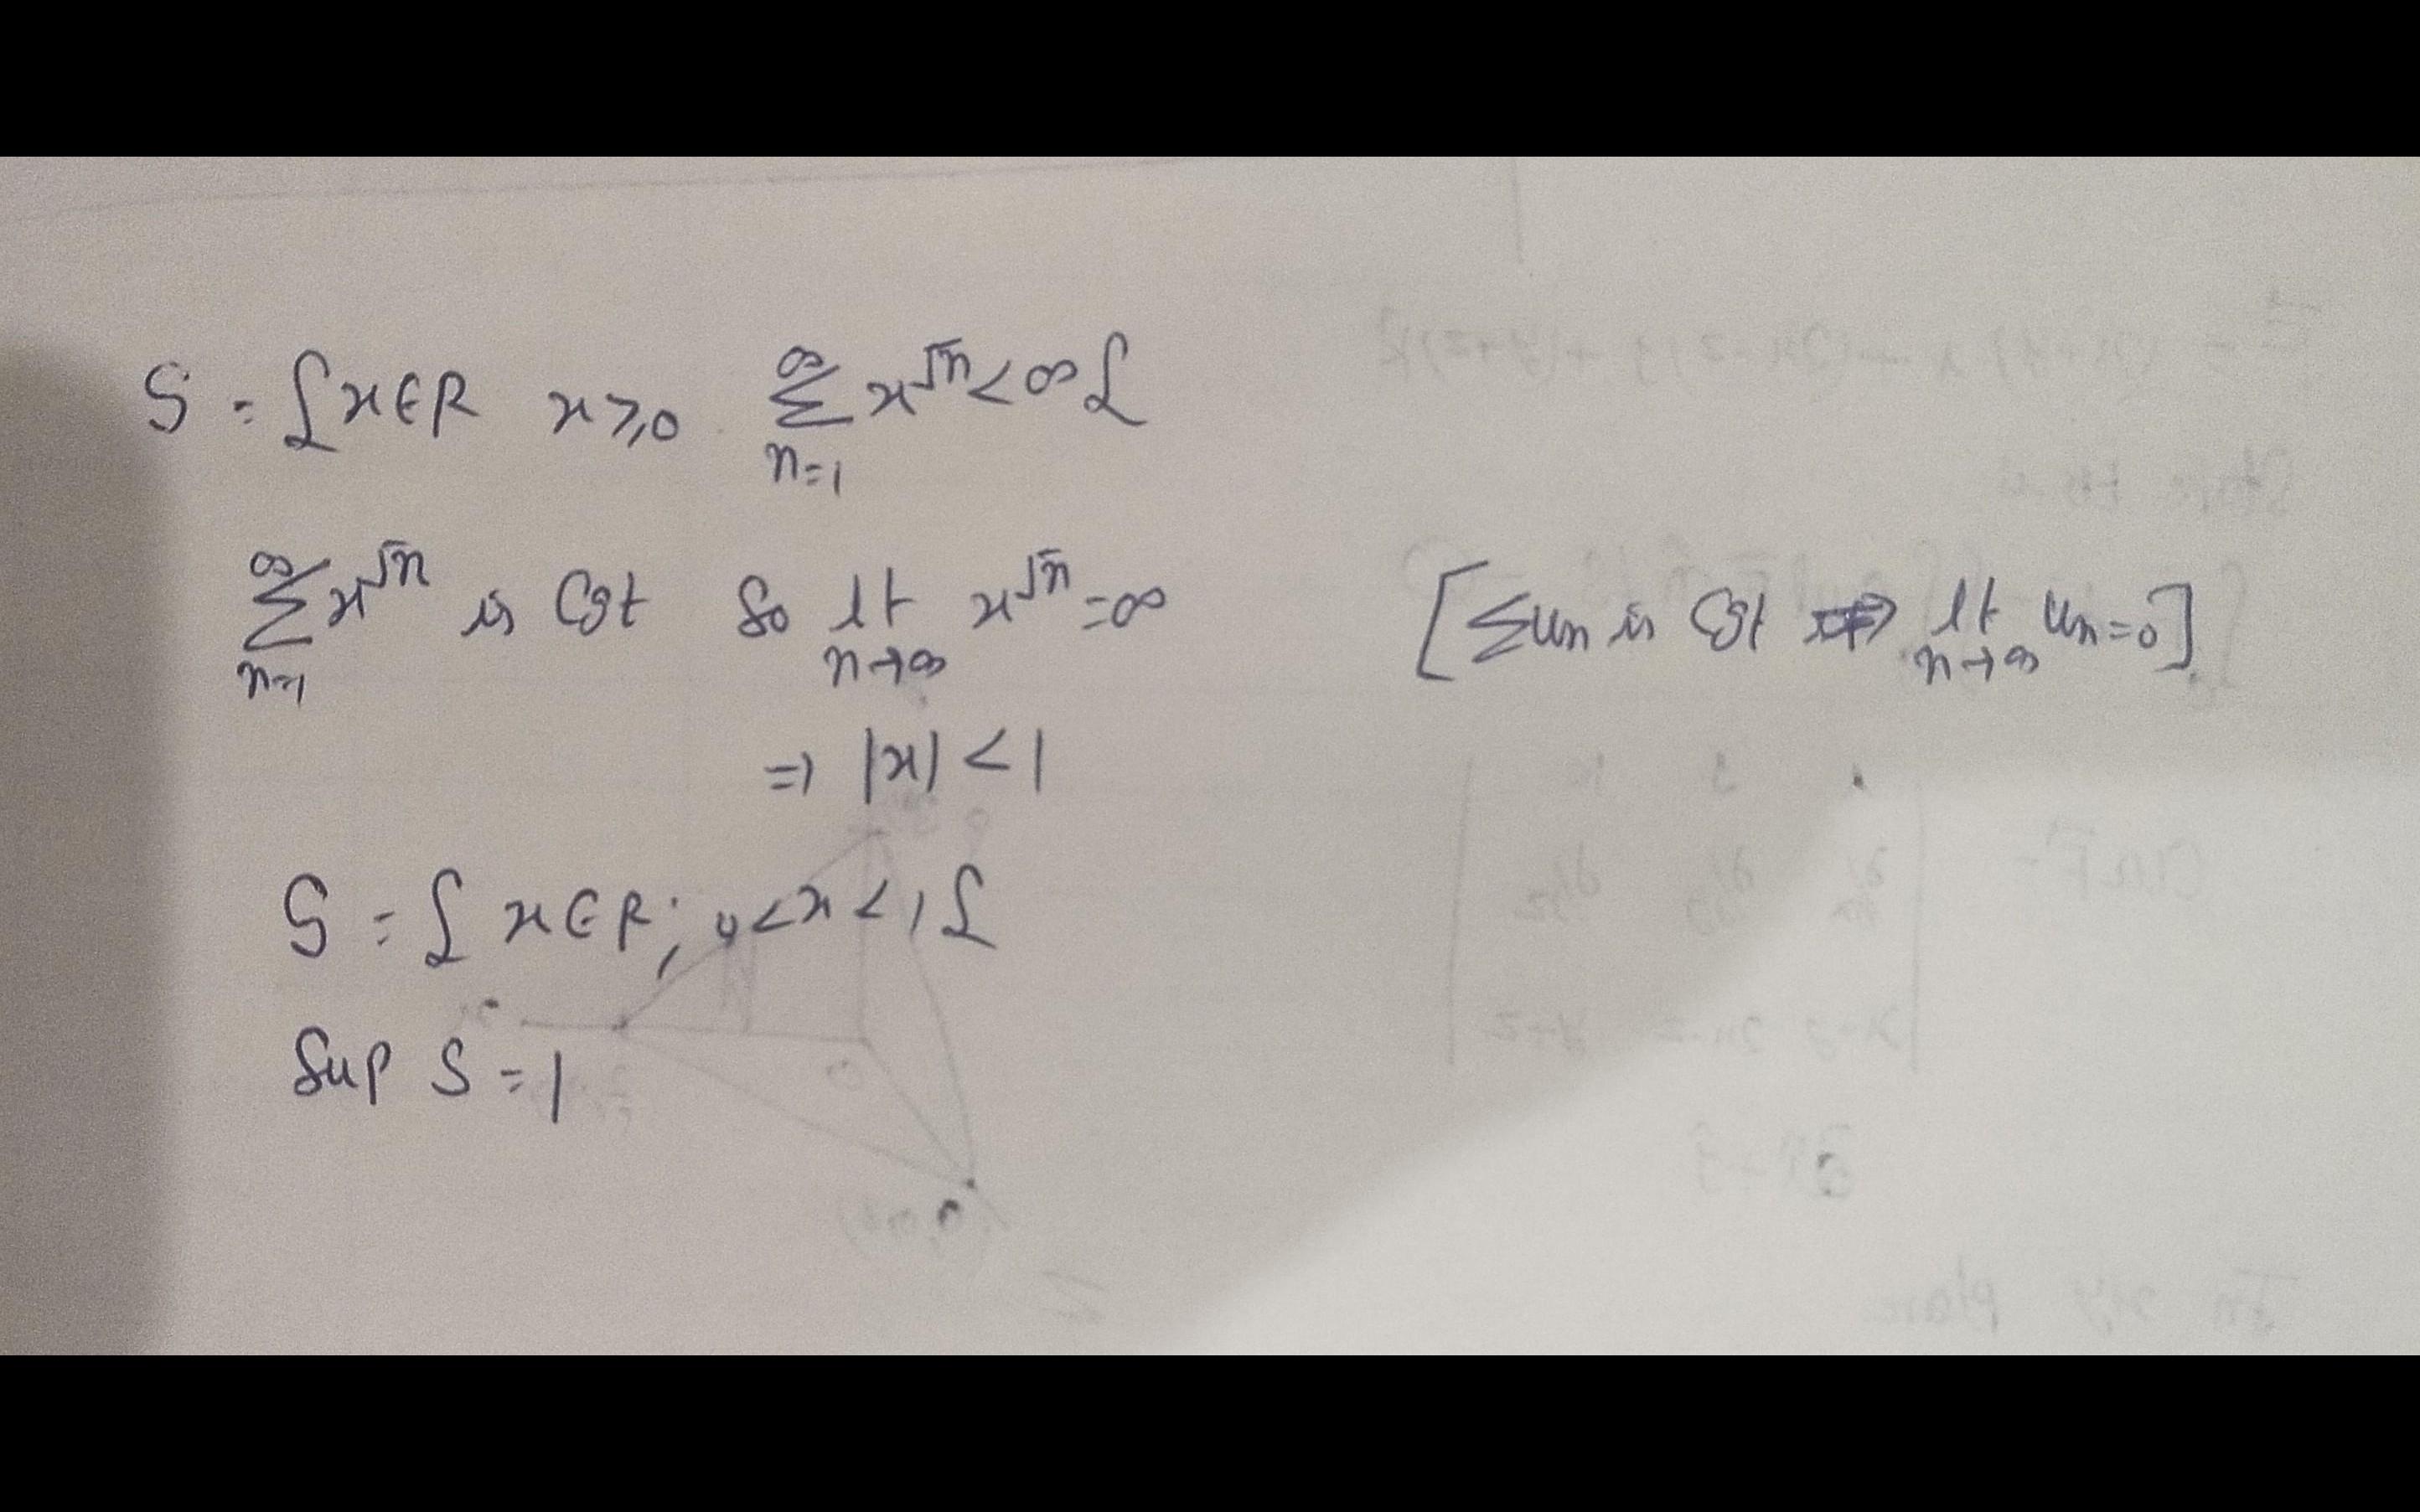 S = { x ∈ R x ≥ 0 ∑_{n=1}^{∞} x^{√n} < ∞ }
∑_{n=1}^{∞} x^{√n} is Cgt So lt_{n→∞} x^{√n} = ∞ [∑un is Cgt ⇒ lt_{n→∞} un = 0]
⇒ |x| < 1
S = { x ∈ R; 0 < x < 1 }
Sup S = 1